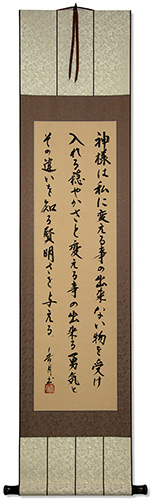 神様は私に変える事の出来ない物を受け
入れる穏やかさと変える事の出来る勇気と
その違いを知る賢明さを与える